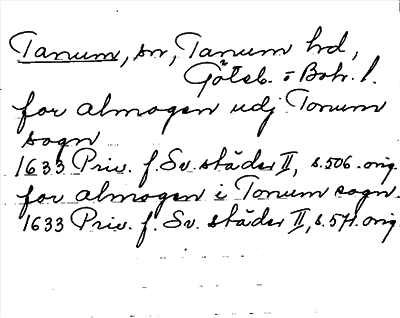 Tanum, sn, Tanum hd,
Göteb. o Boh. l.
for almogen udj Tonum
sogn
1633 Priv. f. Sv. städer II, s. 506. orig.
for almogen i Tonum sogn.
1633 Priv. f. Sv. städer II, s. 571. orig.